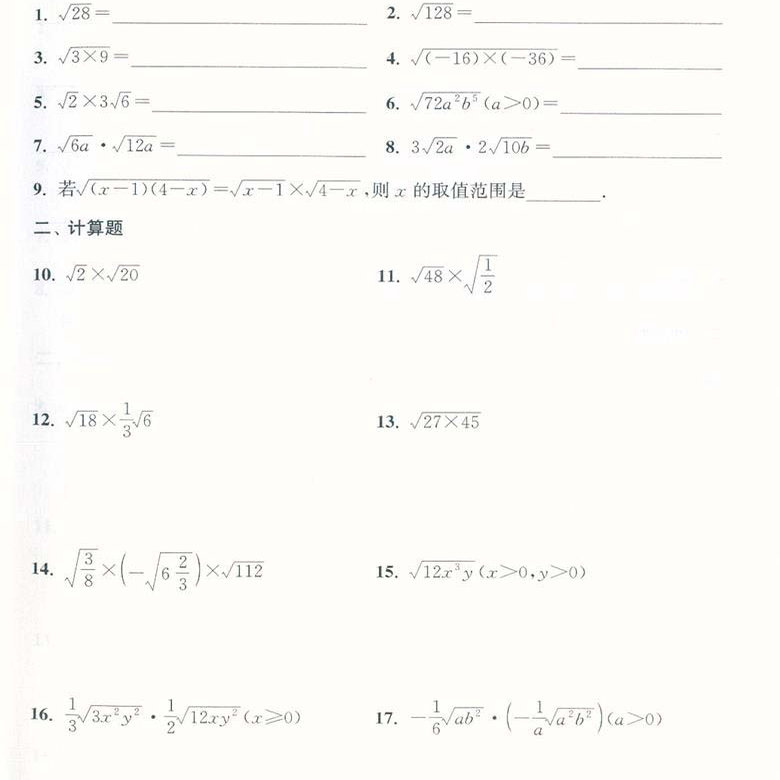 1. √28 = ______ 2. √128 = ______
3. √(3×9) = ______ 4. √((-16)×(-36)) = ______
5. √2×3√6 = ______ 6. √(72a²b⁵)(a>0)= ______
7. √(6a)·√(12a) = ______ 8. 3√(2a)·2√(10b) = ______
9. 若√((x-1)(4-x))=√(x-1)×√(4-x),则 x 的取值范围是______.
二、计算题
10. √2×√20 11. √48×√(1/2)
12. √18×1/3√6 13. √(27×45)
14. √(3/8)×(-√(6 2/3))×√112 15. √(12x³y)(x>0,y>0)
16. 1/3√(3x²y²)·1/2√(12xy²)(x≥0) 17. -1/6√(ab²)·(-1/a√(a²b²))(a>0)